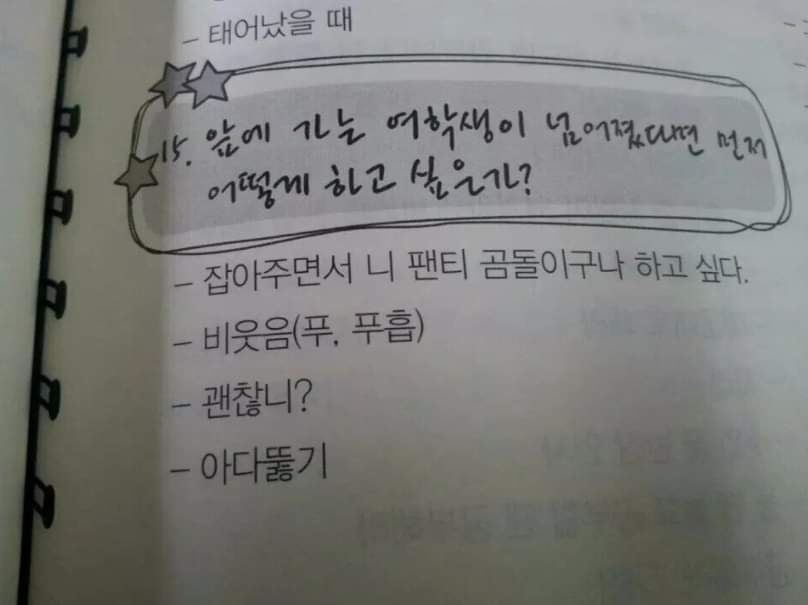 – 태어났을 때
15. 앞에 가는 여학생이 넘어졌다면 먼저
어떻게 하고 싶은가?
– 잡아주면서 니 팬티 곰돌이구나 하고 싶다.
– 비웃음(푸, 푸흡)
– 괜찮니?
– 아다뚫기